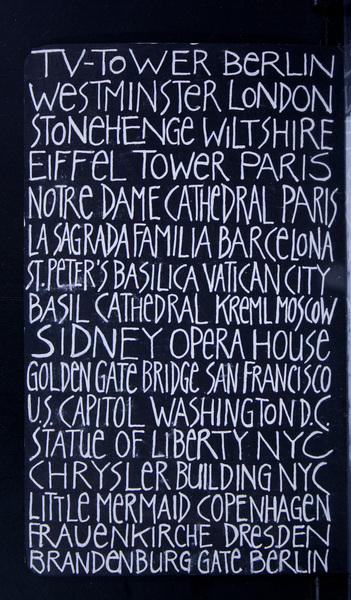 TV-TOWER BERLIN
WESTMINSTER LONDON
STONEHENGE WILTSHIRE
EIFFEL TOWER PARIS
NOTRE DAME CATHEDRAL PARIS
LA SAGRADA FAMILIA BARCELONA
ST. PETER'S BASILICA VATICAN CITY
BASIL CATHEDRAL KREML MOSCOW
SIDNEY OPERA HOUSE
GOLDEN GATE BRIDGE SAN FRANCISCO
U.S. CAPITOL WASHINGTON D.C.
STATUE OF LIBERTY NYC
CHRYSLER BUILDING NYC
LITTLE MERMAID COPENHAGEN
FRAUENKIRCHE DRESDEN
BRANDENBURG GATE BERLIN